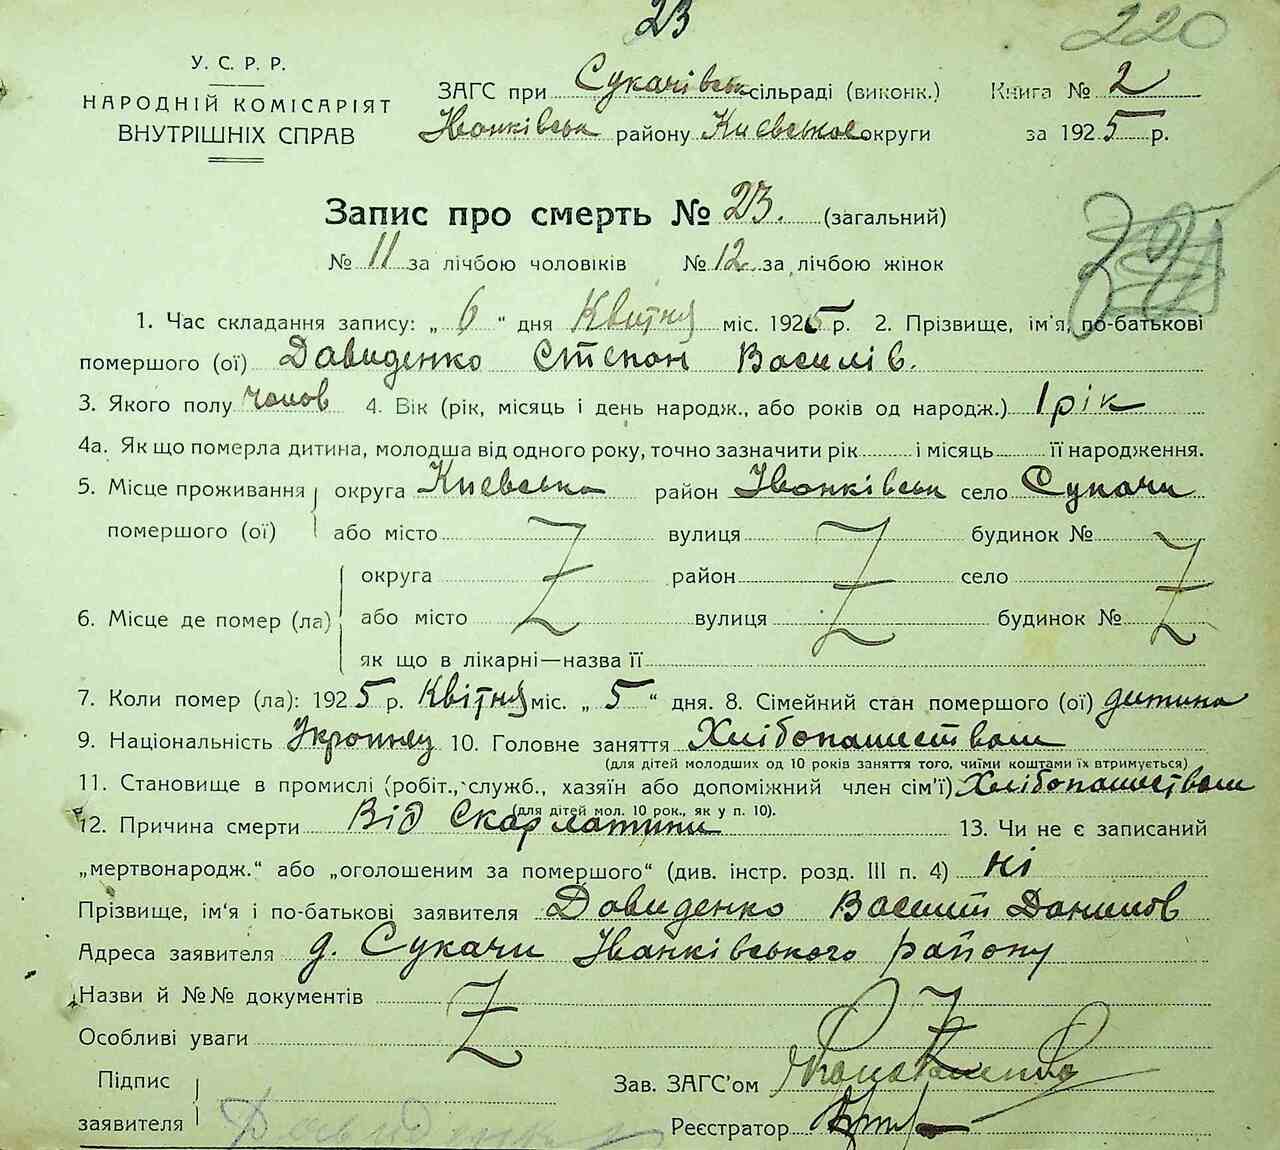 23
220
У. С. Р. Р.
НАРОДНІЙ КОМІСАРІЯТ
ВНУТРІШНІХ СПРАВ
ЗАГС при Сукачівськ сільраді (виконк.) Книга № 2
Іванківськ району Києвською округи за 1925 р.
Запис про смерть № 23. (загальний)
№ 11 за лічбою чоловіків № 12 за лічбою жінок
1. Час складання запису: „ 6 “ дня Квітня міс. 1925 р. 2. Прізвище, ім'я, по-батькові
помершого (ої) Давиденко Степан Василів.
3. Якого полу чолов 4. Вік (рік, місяць і день народж., або років од народж.) 1 рік
4а. Як що померла дитина, молодша від одного року, точно зазначити рік і місяць її народження.
5. Місце проживання округа Киевська район Іванківськ село Сукачи
помершого (ої) або місто Z вулиця Z будинок № Z
6. Місце де помер (ла) округа район село
або місто Z вулиця Z будинок № Z
як що в лікарні—назва її
7. Коли помер (ла): 1925 р. Квітня міс. „ 5 “ дня. 8. Сімейний стан помершого (ої) дитина
9. Національність Украинец 10. Головне заняття Хлібопашеством
(для дітей молодших од 10 років заняття того, чиїми коштами їх втримується)
11. Становище в промислі (робіт., служб., хазяїн або допоміжний член сім'ї) Хлібопашеством
(для дітей мол. 10 рок., як у п. 10).
12. Причина смерти Від Скарлатини 13. Чи не є записаний
„мертвонародж.“ або „оголошеним за помершого“ (див. інстр. розд. III п. 4) ні
Прізвище, ім'я і по-батькові заявителя Давиденко Василь Данилов
Адреса заявителя д. Сукачи Іванківського району
Назви й №№ документів Z
Особливі уваги Z
Підпис
заявителя
Зав. ЗАГС'ом
Реєстратор